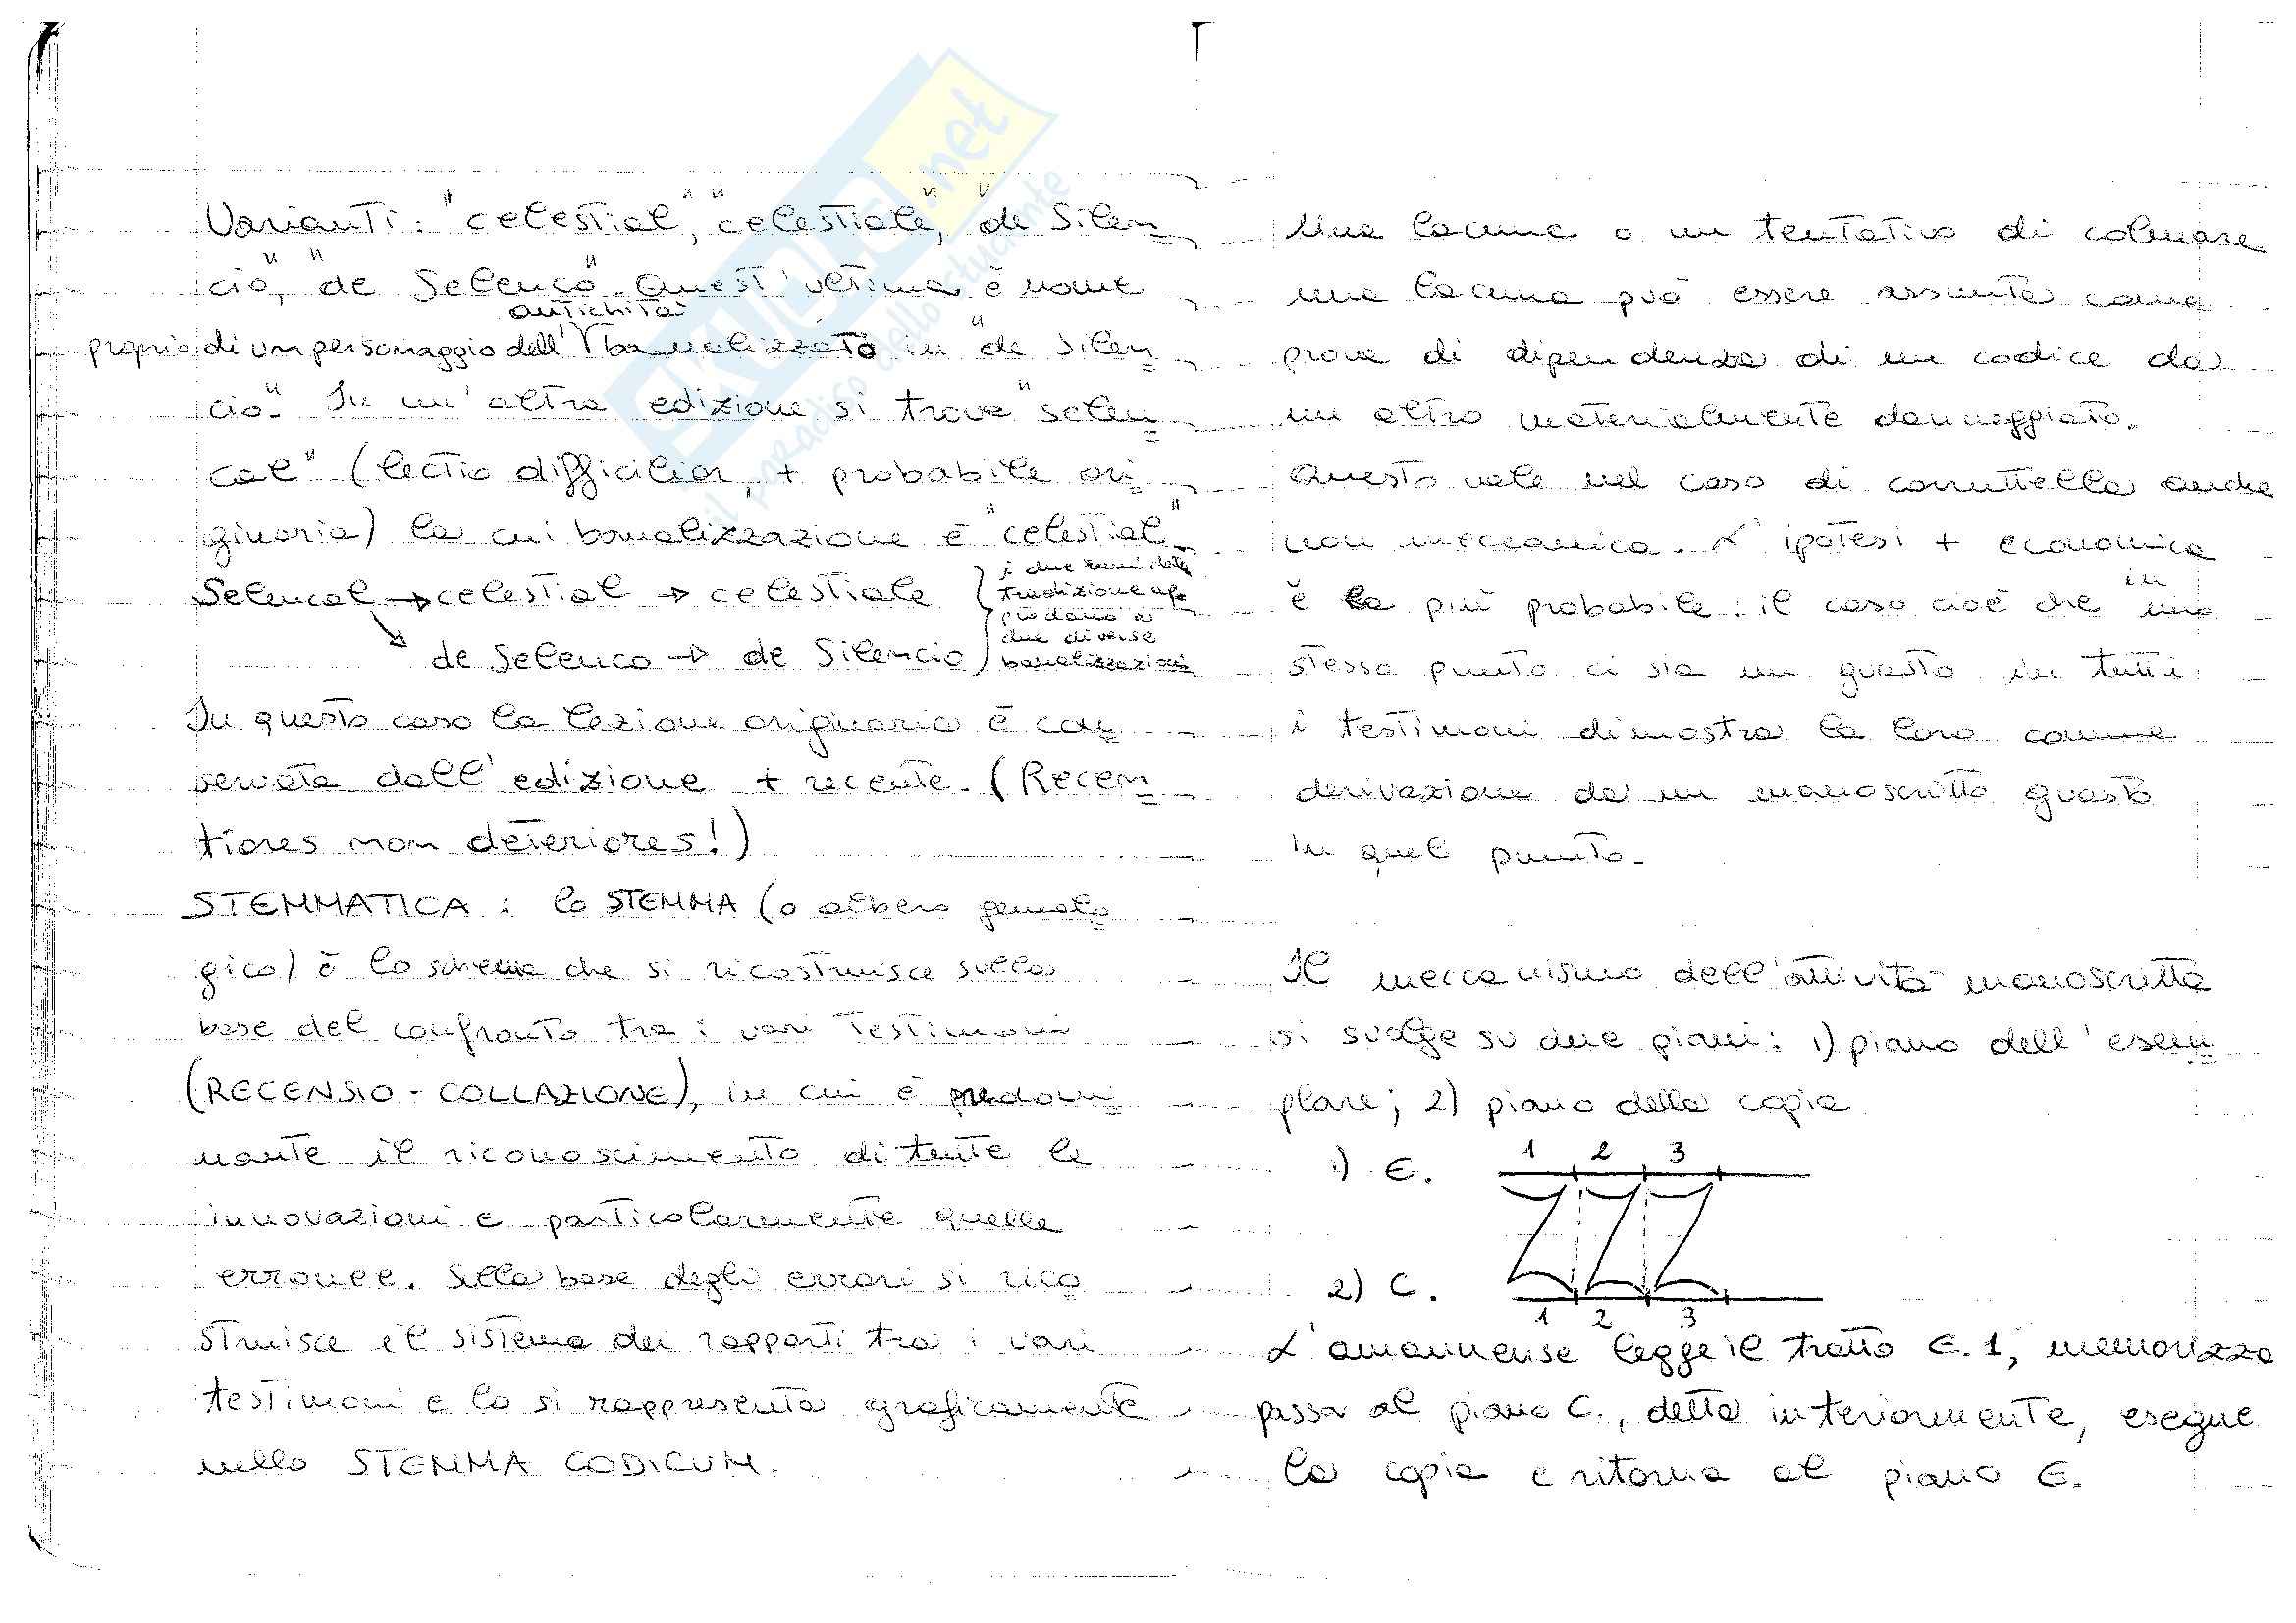 Varianti: "celestial", "celestiale", "de Silen=
cio", "de Seleuco". Quest'ultima è nome
antichità
proprio di un personaggio dell' banalizzato in "de Silen=
cio". In un'altra edizione si trova "selen=
cal" (lectio difficilior, + probabile ori=
ginaria) la cui banalizzazione è "celestial".
Selencal → celestial → celestiale
de Seleuco → de Silencio
i due rami della
tradizione ap
prodano a
due diverse
banalizzazioni
In questo caso la lezione originaria è con=
servata dall'edizione + recente. (Recen=
tiores non deteriores!)
STEMMATICA: lo STEMMA (o albero genealo=
gico) è lo schema che si ricostruisce sulla
base del confronto tra i vari testimoni
(RECENSIO - COLLAZIONE), in cui è predomi=
nante il riconoscimento di tutte le
innovazioni e particolarmente quelle
erronee. Sulla base degli errori si rico=
struisce il sistema dei rapporti tra i vari
testimoni e lo si rappresenta graficamente
nello STEMMA CODICUM.
Una lacuna o un tentativo di colmare
una lacuna può essere assunta come
prova di dipendenza di un codice da
un altro materialmente danneggiato.
Questo vale nel caso di corruttella anche
non meccanica. L'ipotesi + economica
in
è la più probabile: il caso cioè che uno
stesso punto ci sia un guasto in tutti
i testimoni dimostra la loro comune
derivazione da un manoscritto guasto
in quel punto.
Il meccanismo dell'attività manoscritta
si svolge su due piani: 1) piano dell'esem=
plare; 2) piano della copia
1 2 3
1) E.
2) C.
1 2 3
L'amannense legge il tratto E.1, memorizza
passa al piano C., detta interiormente, esegue
la copia e ritorna al piano E.
SKUOLA.net
il paradiso dello studente